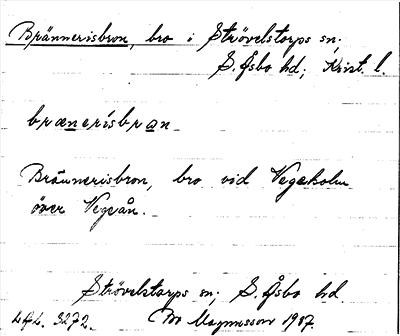 Brännerisbron, bro i Strövelstorps sn;
S. Åsbo hd; Krist. l.
brænerisbron
Brännerisbron, bro vid Vegeholm
över Vegeån.
Strövelstorps sn; S. Åsbo hd
3272. Magnusson 1917.